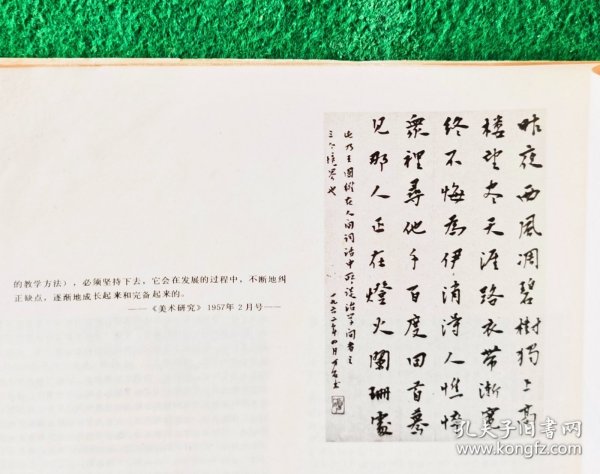 的教学方法），必须坚持下去，它会在发展的过程中，不断地纠
正缺点，逐渐地成长起来和完备起来的。
——《美术研究》1957年2月号——
昨夜西風凋碧樹獨上高
楼望尽天涯路衣带漸寬
终不悔為伊消得人憔悴
衆裡尋他千百度回首驀
见那人正在燈火闌珊處
此乃王國维在人间詞话中所谈治学问者之
三个境界也
一九六二年四月
孔夫子旧书网
www.kongfz.com